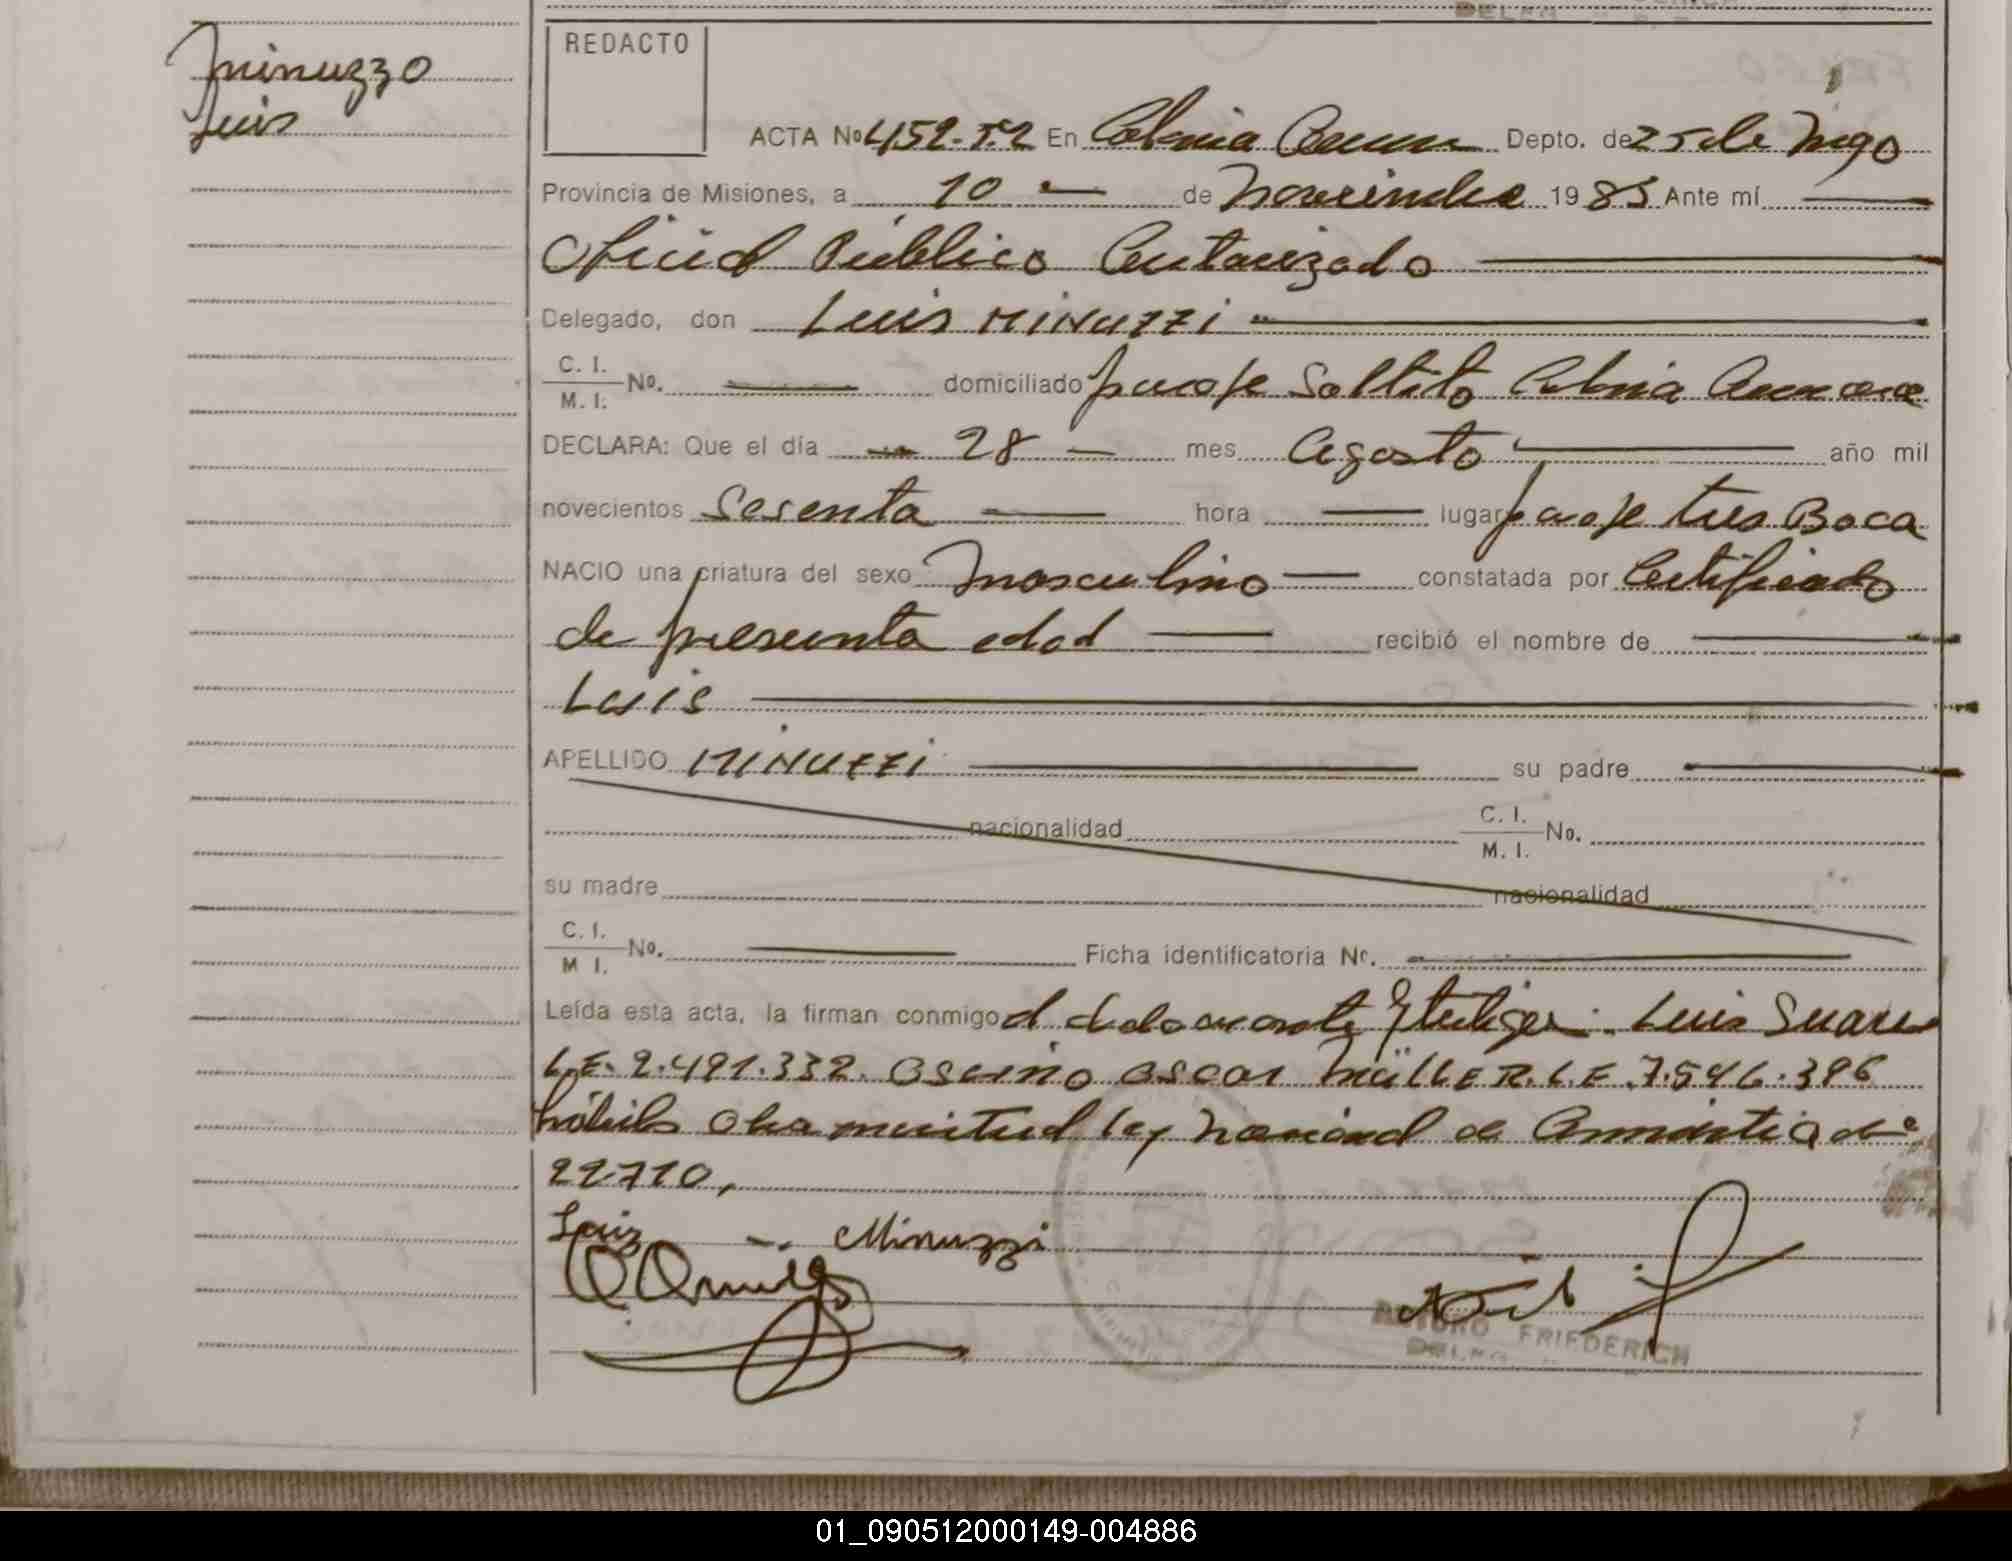 Minuzzo
Luis
REDACTO
ACTA Nº 452-T.2 En Colonia Aurora Depto. de 25 de Mayo
Provincia de Misiones, a 10 de Noviembre 1985 Ante mí
Oficial Público Autorizado
Delegado, don Luis MINUZZI
C. I.
M. I. No. domiciliado paraje Saltito Colonia Aurora
DECLARA: Que el día 28 mes Agosto año mil
novecientos Sesenta hora lugar paraje tres Boca
NACIO una criatura del sexo Masculino constatada por Certificado
de presunta edad recibió el nombre de
Luis
APELLIDO MINUZZI su padre
nacionalidad C. I.
M. I. No.
su madre nacionalidad
C. I.
M I. No. Ficha identificatoria Nº.
Leída esta acta, la firman conmigo el declarante Luis Suares
L.E. 2.491.332. Oscar MüLLER. L.E. 7.546.396
hábiles ley Nacional de Amnistia
22710,
Luiz Minuzzi
ARTURO FRIEDERICH